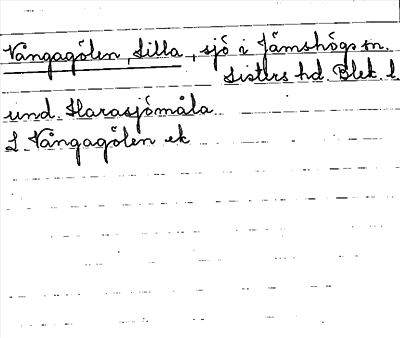 Vångagölen, Lilla, sjö i Jämshögs sn.
Listers hd. Blek. l.
und. Harasjömåla
L. Vångagölen ek